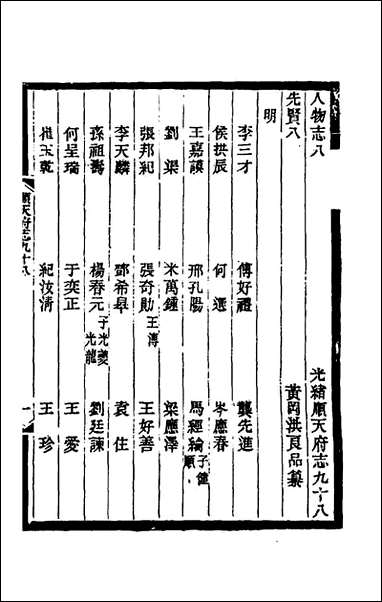 人物志八 光緒順天府志九十八
先賢八 黃岡洪良品纂
明
李三才 傅好禮 龔先進
侯拱辰 何選 岑應春
王嘉謨 邢孔陽 馬經綸 子健順
劉渠 米萬鍾 梁應澤
張邦紀 張奇勛 王溥 王好善
李天麟 鄧希皋 袁住
孫祖壽 楊春元 子光夔 光龍 劉廷諫
何呈瑞 于奕正 王愛
崔玉乾 紀汝清 王珍
順天府志九十八 一